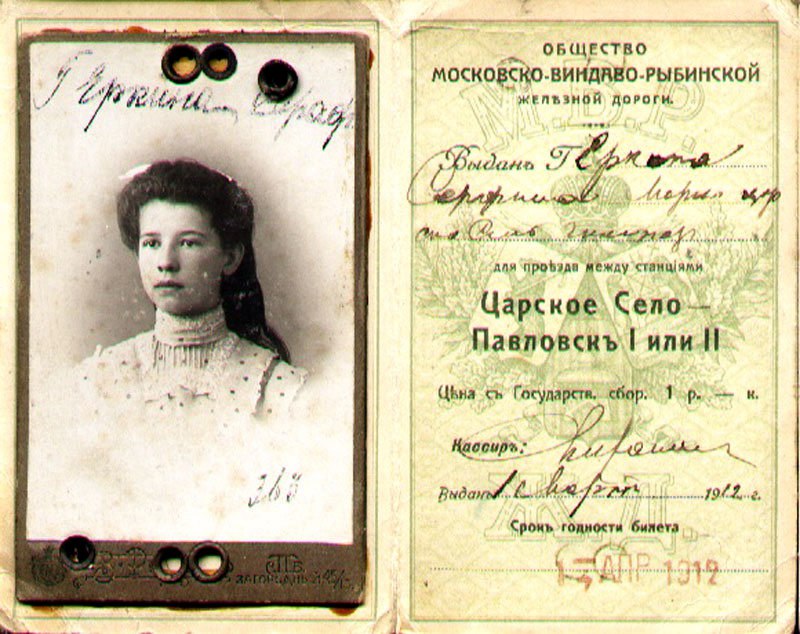 Геркина Сераф
363
С.П.Б.
ЗАГОРОДНЫЙ
ОБЩЕСТВО
МОСКОВСКО-ВИНДАВО-РЫБИНСКОЙ
ЖЕЛѢЗНОЙ ДОРОГИ.
М.В.Р.
Выданъ Геркина
для проѣзда между станціями
Царское Село—
Павловскъ I или II
Цѣна съ Государств. сбор. 1 р. — к.
Кассиръ:
Ж.Д.
Выданъ 1 Марта 1912 г.
Срокъ годности билета
АПР 1912